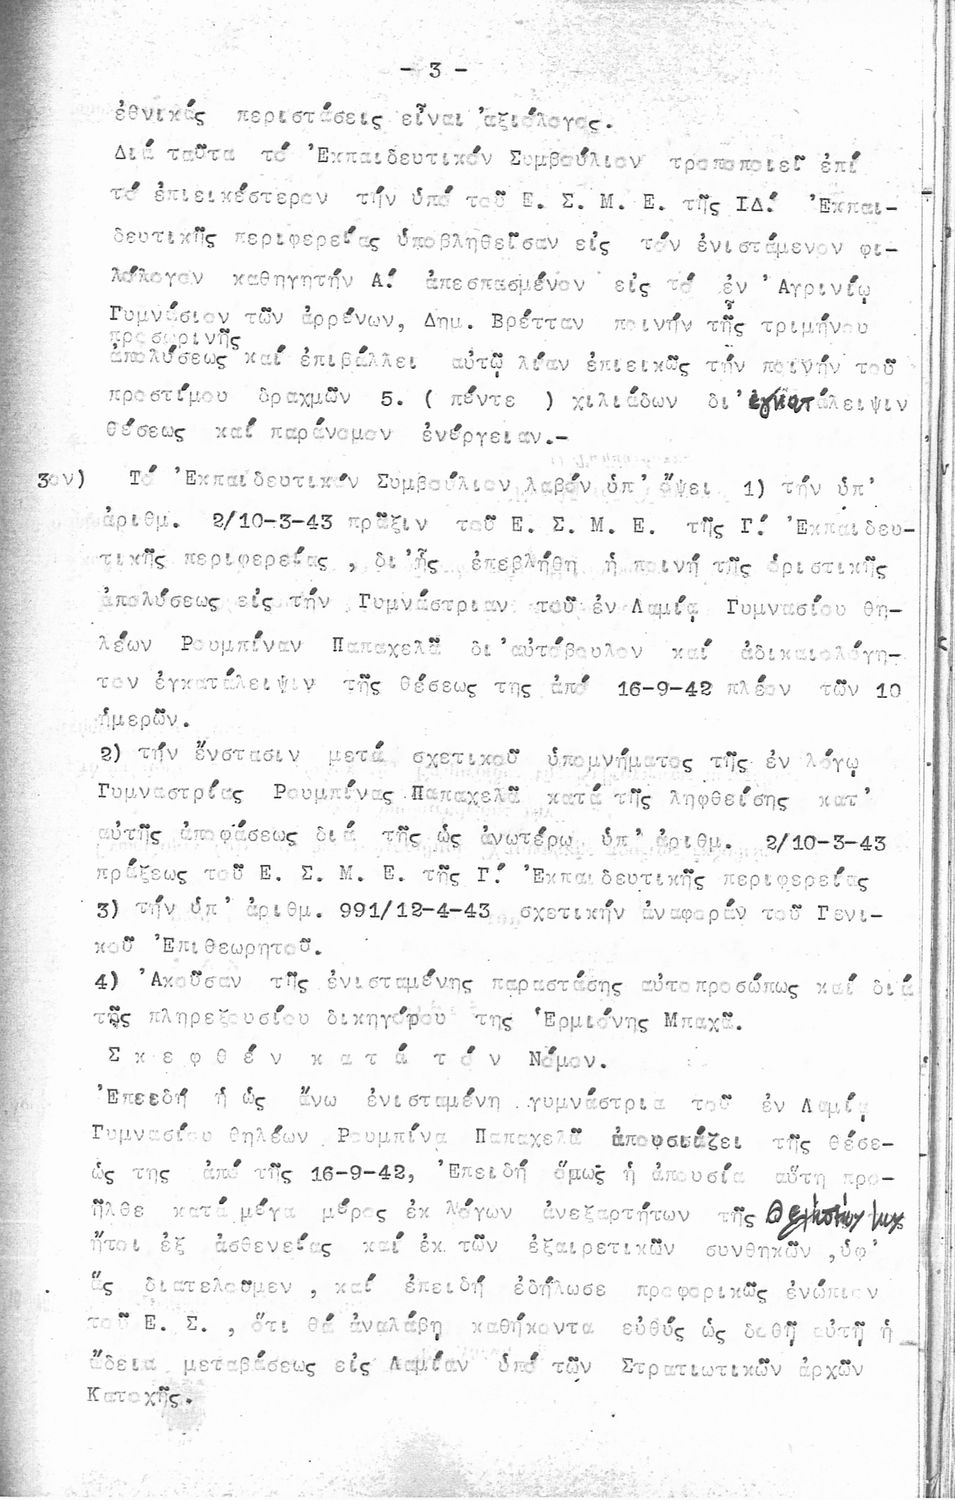 - 3 -
ἐθνικάς περιστάσεις εἶναι ἀξιόλογος.
Διά ταῦτα τό Ἐκπαιδευτικόν Συμβούλιον τροποποιεῖ ἐπί
τό ἐπιεικέστερον τήν ὑπό τοῦ Ε. Σ. Μ. Ε. τῆς ΙΔ! Ἐκπαι-
δευτικῆς περιφερείας ὑποβληθεῖσαν εἰς τόν ἐνιστάμενον φι-
λόλογον καθηγητήν Α! ἀπεσπασμένον εἰς τό ἐν Ἀγρινίῳ
Γυμνάσιον τῶν ἀρρένων, Δημ. Βρέτταν ποινήν τῆς τριμήνου
προσωρινῆς
ἀπολύσεως καί ἐπιβάλλει αὐτῷ λίαν ἐπιεικῶς τήν ποινήν τοῦ
προστίμου δραχμῶν 5. ( πέντε ) χιλιάδων δι' ἐγκατάλειψιν
θέσεως καί παράνομον ἐνέργειαν.-
3ον) Τό Ἐκπαιδευτικόν Συμβούλιον λαβόν ὑπ' ὄψει 1) τήν ὑπ'
ἀριθμ. 2/10-3-43 πρᾶξιν τοῦ Ε. Σ. Μ. Ε. τῆς Γ! Ἐκπαιδευ-
τικῆς περιφερείας , δι' ἧς ἐπεβλήθη ἡ ποινή τῆς ὁριστικῆς
ἀπολύσεως εἰς τήν Γυμνάστριαν τοῦ ἐν Λαμίᾳ Γυμνασίου θη-
λέων Ρουμπίναν Παπαχελᾶ δι' αὐτόβουλον καί ἀδικαιολόγη-
τον ἐγκατάλειψιν τῆς θέσεως της ἀπό 16-9-42 πλέον τῶν 10
ἡμερῶν.
2) τήν ἔνστασιν μετά σχετικοῦ ὑπομνήματος τῆς ἐν λόγῳ
Γυμναστρίας Ρουμπίνας Παπαχελᾶ κατά τῆς ληφθείσης κατ'
αὐτῆς ἀποφάσεως διά τῆς ὡς ἀνωτέρω ὑπ' ἀριθμ. 2/10-3-43
πράξεως τοῦ Ε. Σ. Μ. Ε. τῆς Γ! Ἐκπαιδευτικῆς περιφερείας
3) τήν ὑπ' ἀριθμ. 991/12-4-43 σχετικήν ἀναφοράν τοῦ Γενι-
κοῦ Ἐπιθεωρητοῦ.
4) Ἀκοῦσαν τῆς ἐνισταμένης παραστάσης αὐτοπροσώπως καί διά
τῆς πληρεξουσίου δικηγόρου της Ἑρμιόνης Μπαχᾶ.
Σ κ ε φ θ έ ν κ α τ ά τ ό ν Νόμον.
Ἐπεεδή ἡ ὡς ἄνω ἐνισταμένη γυμνάστρια τοῦ ἐν Λαμίᾳ
Γυμνασίου θηλέων Ρουμπίνα Παπαχελᾶ ἀπουσιάζει τῆς θέσε-
ώς της ἀπό τῆς 16-9-42, Ἐπειδή ὅμως ἡ ἀπουσία αὕτη προ-
ῆλθε κατά μέγα μέρος ἐκ λόγων ἀνεξαρτήτων τῆς θελήσεών της
ἤτοι ἐξ ἀσθενείας καί ἐκ τῶν ἐξαιρετικῶν συνθηκῶν ,ὑφ'
ἅς διατελοῦμεν , καί ἐπειδή ἐδήλωσε προφορικῶς ἐνώπιον
τοῦ Ε. Σ. , ὅτι θά ἀναλάβῃ καθήκοντα εὐθύς ὡς δοθῇ αὐτῇ ἡ
ἄδεια μεταβάσεως εἰς Λαμίαν ὑπό τῶν Στρατιωτικῶν ἀρχῶν
Κατοχῆς.